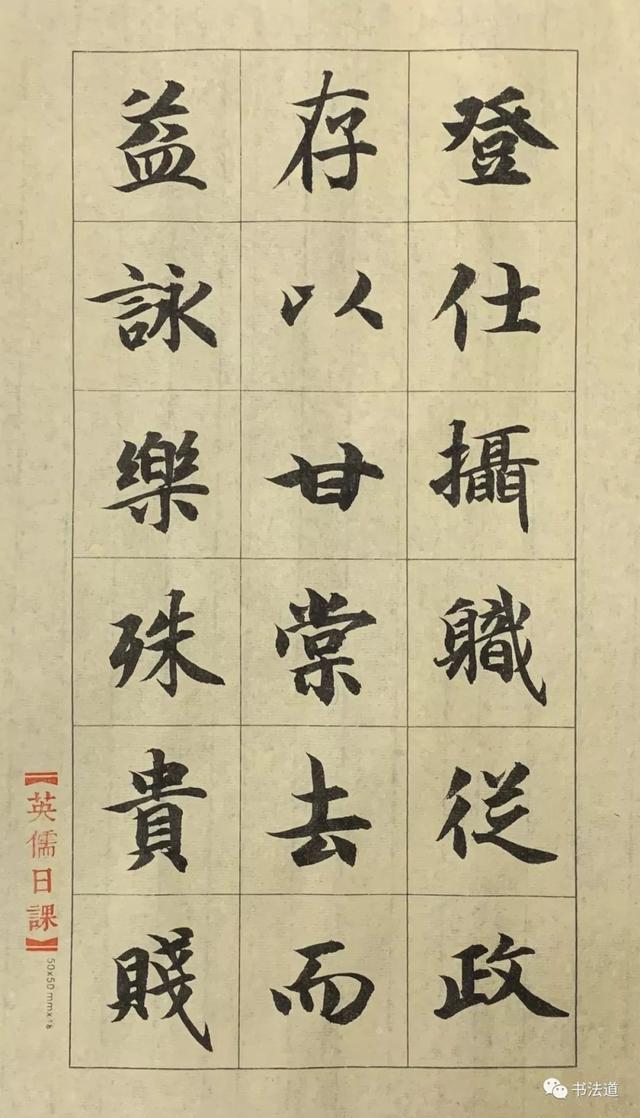 登仕攝職從政
存以甘棠去而
益詠樂殊貴賤
【英儒日課】
50x50mmx18
书法道